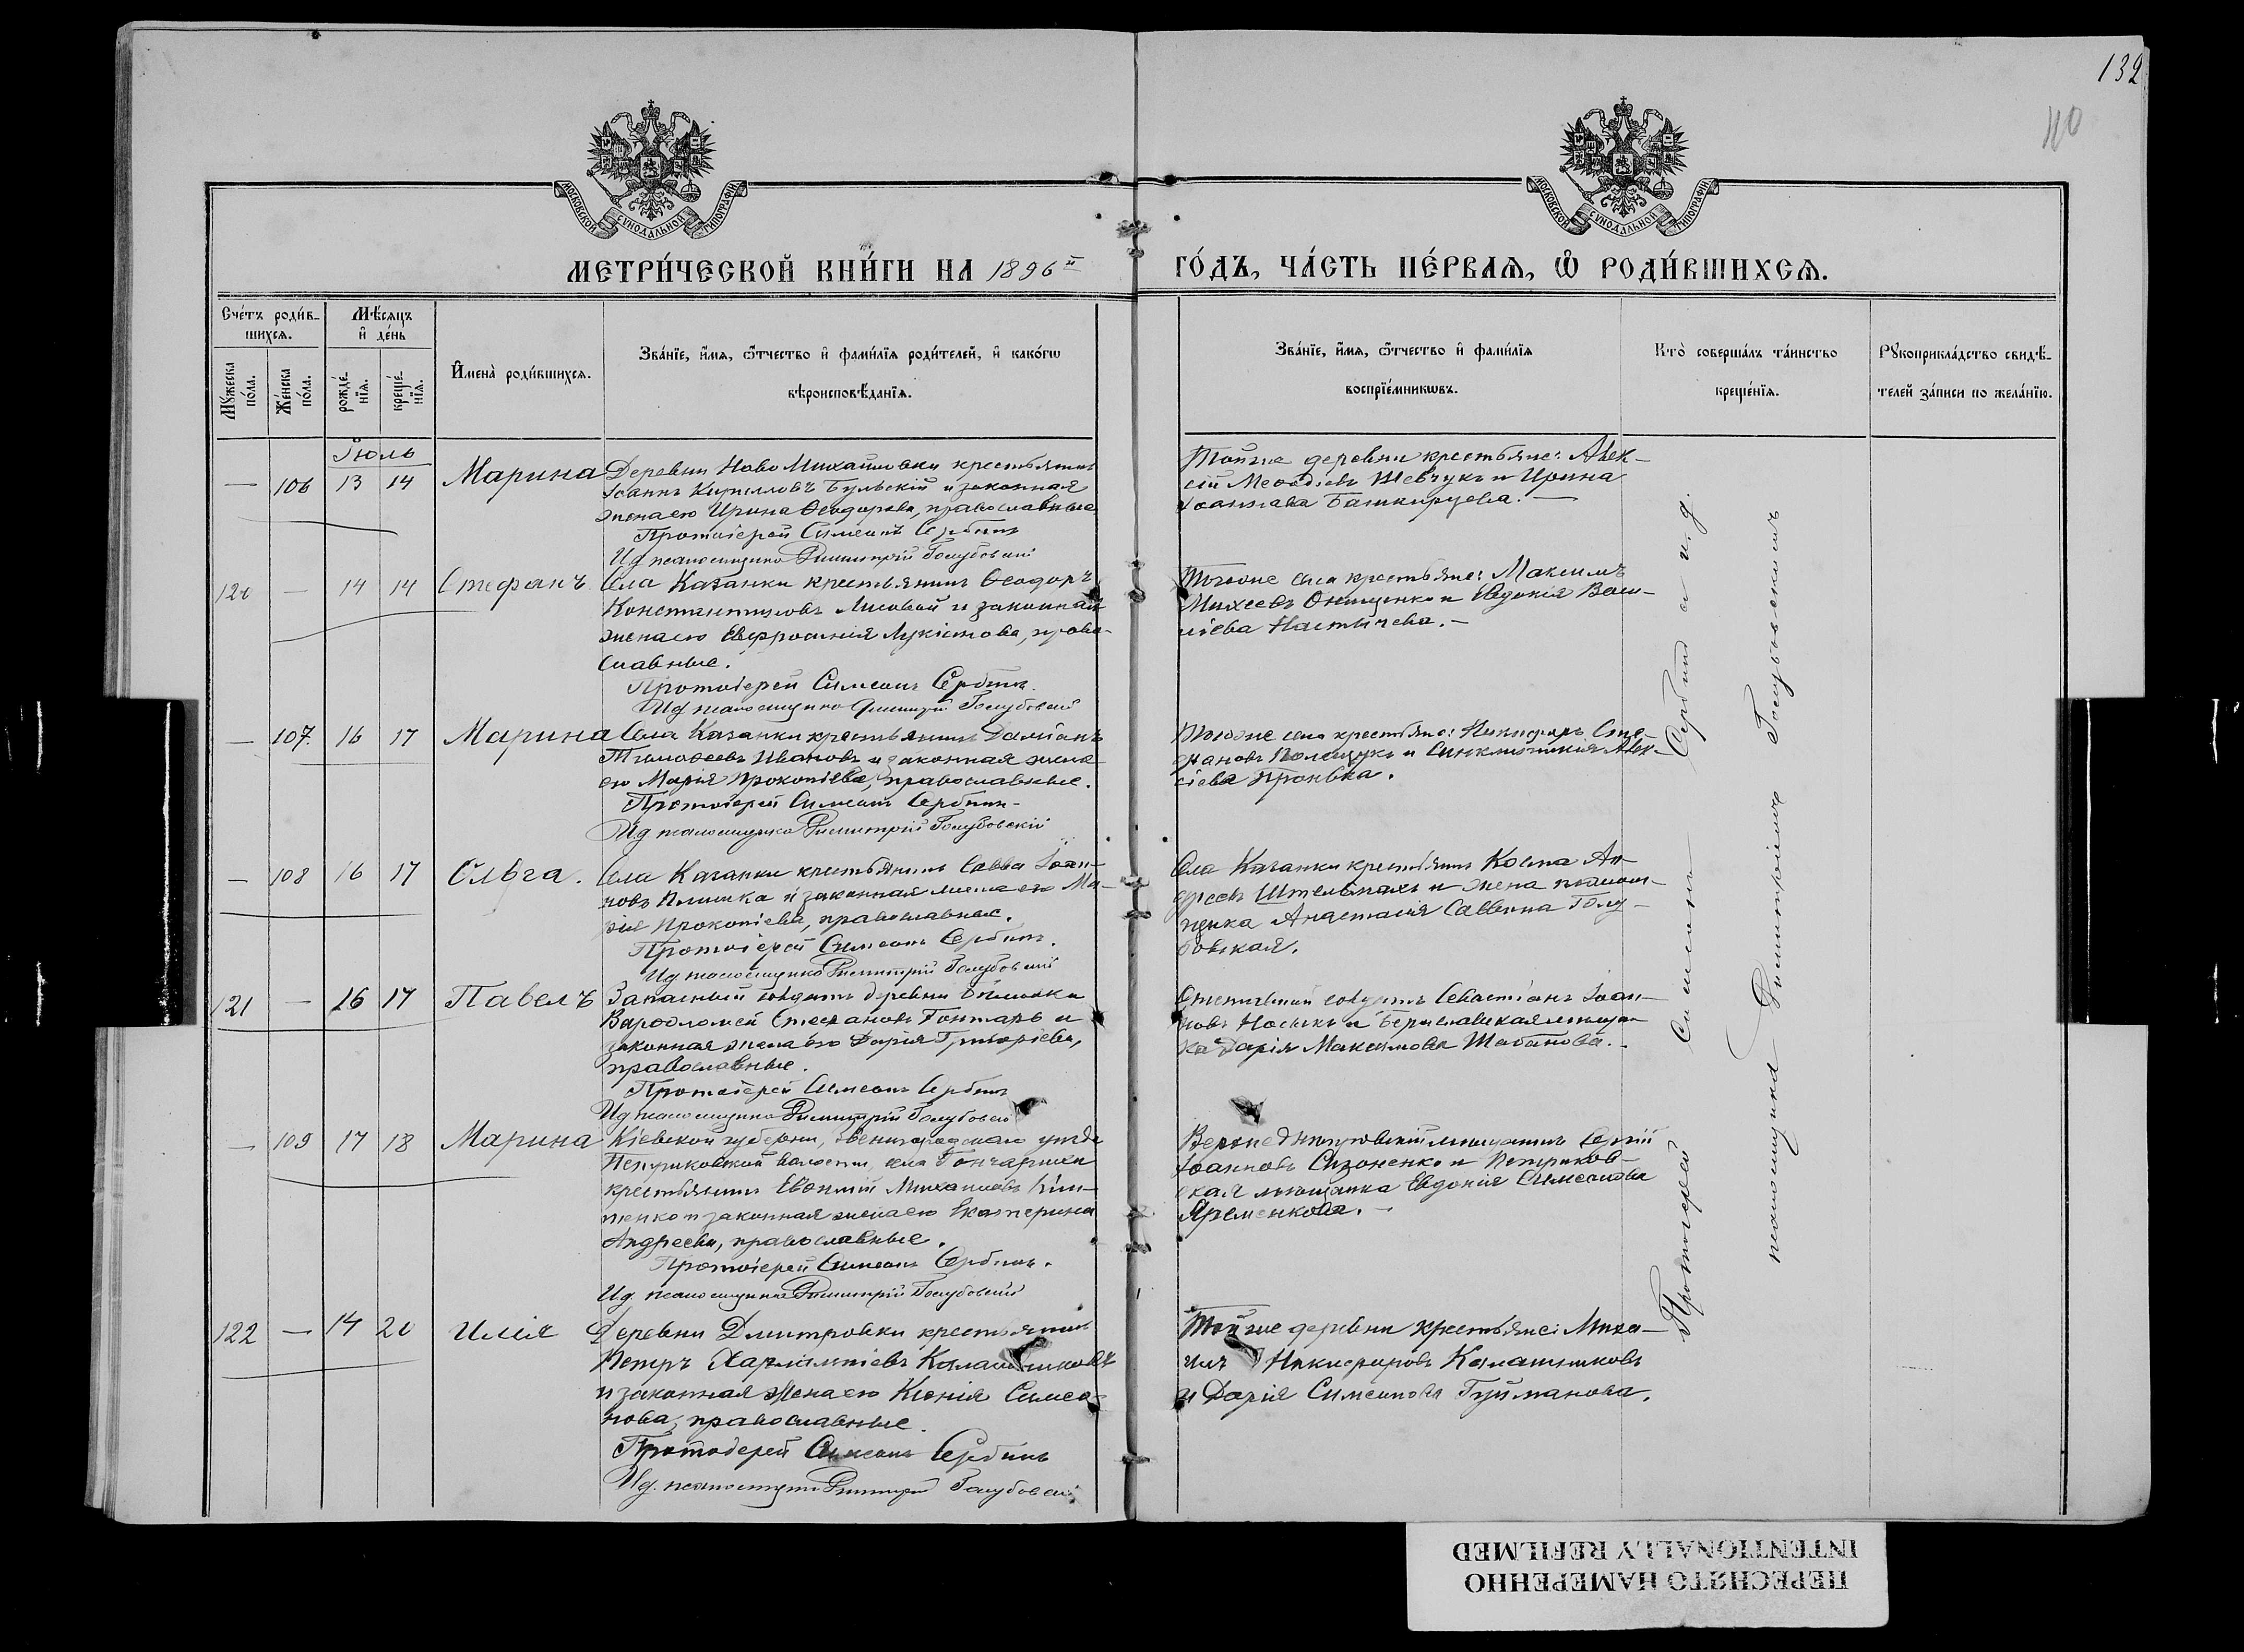 132
110
МОСКОВСКОЙ СѴНОДАЛЬНОЙ ТИПОГРАФІИ
МОСКОВСКОЙ СѴНОДАЛЬНОЙ ТИПОГРАФІИ
МЕТРИ́ЧЕСКОЙ КНИ́ГИ НА 1896й
ГО́ДЪ, ЧА́СТЬ ПЕ́РВАѦ, Ѽ РОДИ́ВШИХСѦ.
Сче́тъ роди́в-
шихсѧ.
Мꙋ́жеска по́ла.
Же́нска по́ла.
Мѣ́сѧцъ
и҆ де́нь
рожде́-
нїѧ.
креще́-
нїѧ.
И҆мена̀ роди́вшихсѧ.
Зва́нїе, и҆́мѧ, ѻ҆́тчество и҆ фами́лїѧ роди́телей, и҆ како́гѡ
вѣроисповѣ́данїѧ.
Зва́нїе, и҆́мѧ, ѻ҆́тчество и҆ фами́лїѧ
воспрїе́мникѡвъ.
Кто̀ соверша́лъ та́инство
креще́нїѧ.
Рꙋкоприкла́дство свидѣ́-
телей за́писи по жела́нїю.
Іюль
— 106 13 14 Марина
Деревни Ново Михайловки крестьянинъ
Іоаннъ Кирилловъ Бульскій и законная
жена его Ирина Ѳеодорова, православные
Протоіерей Симеонъ Сербинъ
Ид псаломщика Димитрій Голубовскій
Тойже деревни крестьяне: Алек-
сій Меѳодіевъ Шевчукъ и Ирина
Іоаннова Башкирцева. —
120 — 14 14 Стефанъ
Села Казанки крестьянинъ Ѳеодоръ
Константиновъ Лисовой и законная
жена его Евфросинія Лукіанова, право-
славные.
Протоіерей Симеонъ Сербинъ.
Ид псаломщика Димитрій Голубовскій
Тогоже села крестьяне: Максимъ
Михеевъ Онищенко и Евдокія Васи-
ліева
— 107. 16 17 Марина
Села Казанки крестьянинъ Даміанъ
Тимоѳеевъ Ивановъ и законная жена
его Марія Прокопіева, православные.
Протоіерей Симеонъ Сербинъ
Ид псаломщика Димитрій Голубовскій
Тогоже села крестьяне: Никифоръ Сте-
фановъ Полищукъ и Синклитикія Алек-
сіева
— 108 16 17 Ольга.
Села Казанки крестьянинъ Савва Іоан-
новъ и законная жена его Ма-
рія Прокопіева, православные.
Протоіерей Симеонъ Сербинъ.
Ид псаломщика Димитрій Голубовскій
Села Казанки крестьянинъ Косма Ан-
дреевъ Штельмахъ и жена псалом-
щика Анастасія Саввина Голу-
бовская.
121 — 16 17 Павелъ
Запасный солдатъ деревни
Варѳоломей Стефановъ Гонтарь и
законная жена его Дарія Григоріева,
православные.
Протоіерей Симеонъ Сербинъ
Ид псаломщика Димитрій Голубовскій
солдатъ Севастіанъ Іоан-
новъ Носикъ и Бериславская мѣщан-
ка Дарія Максимова Шабанова. —
— 109 17 18 Марина
Кіевской губерніи, Звенигородскаго уѣзда
волости, села Гончарихи
крестьянинъ Евѳимій Михаиловъ
и законная жена его Екатерина
Андреева, православные.
Протоіерей Симеонъ Сербинъ.
Ид. псаломщика Димитрій Голубовскій
Верхнеднѣпровскій мѣщанинъ Сергій
Іоанновъ Сизоненко и Петриков-
ская мѣщанка Евдокія Симеонова
Яременкова. —
122 — 14 20 Илія
Деревни Дмитровки крестьянинъ
Петръ Харлампіевъ Калашниковъ
и законная жена его Ксенія Симео-
нова, православные.
Протоіерей Симеонъ Сербинъ
Ид. псаломщика Димитрій Голубовскій
Тойже деревни крестьяне: Миха-
илъ Никифоровъ Калашниковъ
и Дарія Симеонова Гуйманова.
Протоіерей Симеонъ Сербинъ и и. д.
псаломщика Димитрій Голубовскій
ПЕРЕСНЯТО НАМЕРЕННО
INTENTIONALLY REFILMED